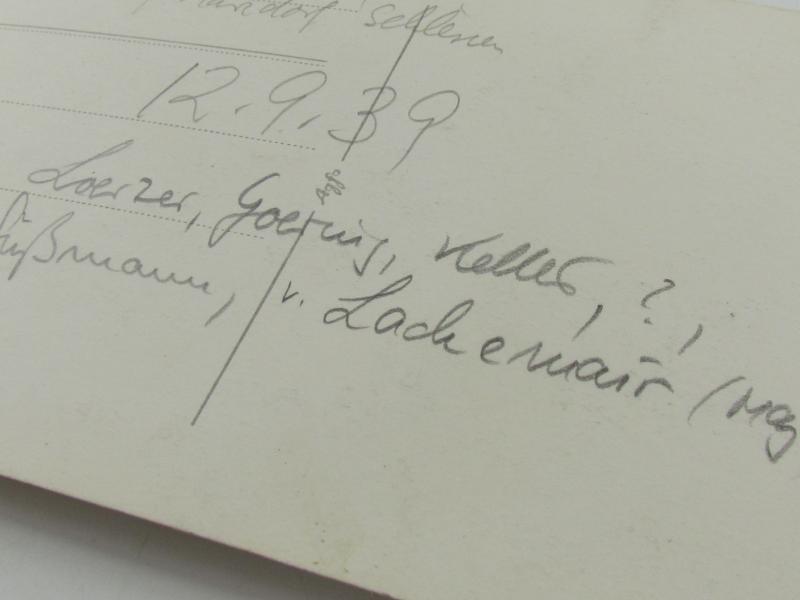 Schlesien
12.9.39
Loerzer, Goering, Keller, ?,
üßmann, v. Lackemair (Maj